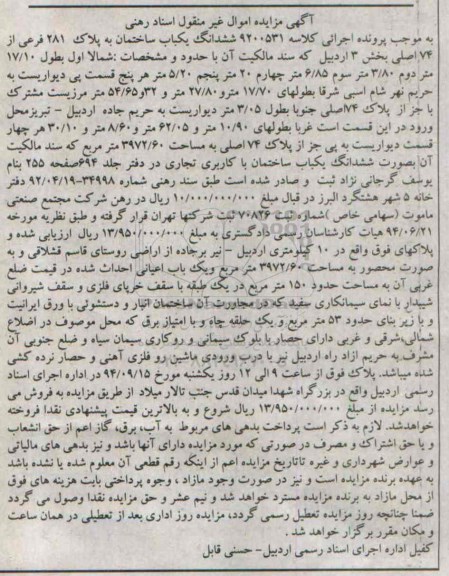 آگهی مزایده اموال غیر منقول اسناد رهنی
به موجب پرونده اجرائی کلاسه ۹۲۰۰۵۳۱ ششدانگ یکباب ساختمان به پلاک ۲۸۱ فرعی از
۷۴ اصلی بخش ۳ اردبیل که سند مالکیت آن با حدود و مشخصات :شمالا اول بطول ۱۷/۱۰
متر دوم ۳/۸۰ متر سوم ۶/۸۵ متر چهارم ۲۰ متر پنجم ۵/۲۰ متر هر پنج قسمت پی دیواریست به
حریم نهر شام اسبی شرقا بطولهای ۱۷/۷۰ مترو ۲۷/۸۰ متر و ۳۲و۵۴/۶۵ متر مرزیست مشترک
با جز از پلاک ۷۴اصلی جنوبا بطول ۳/۰۵ متر دیواریست به حریم جاده اردبیل – تبریزمحل
ورود در این قسمت است غربا بطولهای ۱۰/۹۰ متر و ۶۲/۰۵ متر و۸/۶۰ متر و ۳۰/۱۰ هر چهار
قسمت دیواریست به پی جز از پلاک ۷۴ اصلی به مساحت ۳۹۷۲/۶۰ متر مربع که سند مالکیت
آن بصورت ششدانگ یکباب ساختمان با کاربری تجاری در دفتر جلد ۶۹۴صفحه ۲۵۵ بنام
یوسف گرجانی نژاد ثبت و صادر شده است طبق سند رهنی شماره ۳۴۹۹۸-۹۲/۰۴/۱۹ دفتر
خانه ۵ شهر هشتگرد البرز در قبال مبلغ ۱۰/۰۰۰/۰۰۰/۰۰۰ ریال در رهن شرکت مجتمع صنعتی
ماموت (سهامی خاص )شماره ثبت ۷۰۸۲۶ ثبت شرکتها تهران قرار گرفته و طبق نظریه مورخه
۹۴/۰۶/۲۱ هیات کارشناسان رسمی دادگستری به مبلغ ۱۳/۹۵۰/۰۰۰/۰۰۰ ریال ارزیابی شده و
پلاکهای فوق واقع در ۱۰ کیلومتری اردبیل – نیر برجاده از اراضی روستای قاسم قشلاقی و به
صورت محصور به مساحت ۳۹۷۲/۶۰ متر مربع ویک باب اعیانی احداث شده در قیمت ضلع
غربی آن به مساحت حدود ۱۵۰ متر مربع در یک طبقه با سقف خرپای فلزی و سقف شیروانی
شیبدار با نمای سیمانکاری سفید که در مجاورت آن ساختمان انبار و دستشوئی با ورق ایرانیت
و با زیر بنای حدود ۵۳ متر مربع و یک حلقه چاه و با امتیاز برق که محل موصوف در اضلاع
شمالی،شرقی و غربی دارای حصار با بلوک سیمانی و روکاری سیمان سیاه و ضلع جنوبی آن
مشرف به حریم ازاد راه اردبیل نیر با درب ورودی ماشین رو فلزی آهنی و حصار نرده کشی
شده میباشد. پلاک فوق از ساعت ۹ الی ۱۲ روز یکشنبه مورخ ۹۴/۰۹/۱۵ در اداره اجرای اسناد
رسلمی اردبیل واقع در بزرگراه شهدا میدان قدس جنب تالار میلاد از طریق مزایده به فروش می
رسد مزایده از مبلغ ۱۳/۹۵۰/۰۰۰/۰۰۰ ریال شروع و به بالاترین قیمت پیشنهادی نقدا فروخته
خواهدشد. لازم به ذکر است پرداخت بدهی های مربوط به آب، برق، گاز اعم از حق انشعاب
و یا حق اشتراک و مصرف در صورتی که مورد مزایده دارای آنها باشد و نیز بدهی های مالیاتی
و عوارض شهرداری و غیره تاتاریخ مزایده اعم از اینکه رقم قطعی آن معلوم شده یا نشده باشد
به عهده برنده مزایده است و نیز در صورت وجود مازاد ، وجوه پرداختی بابت هزینه های فوق
از محل مازاد به برنده مزایده مسترد خواهد شد و نیم عشر و حق مزایده نقدا وصول می گردد
ضمنا چنانچه روز مزایده تعطیل رسمی گردد، مزایده روز اداری بعد از تعطیلی در همان ساعت
و مکان مقرر برگزار خواهد شد .
کفیل اداره اجرای اسناد رسمی اردبیل– حسنی قابل